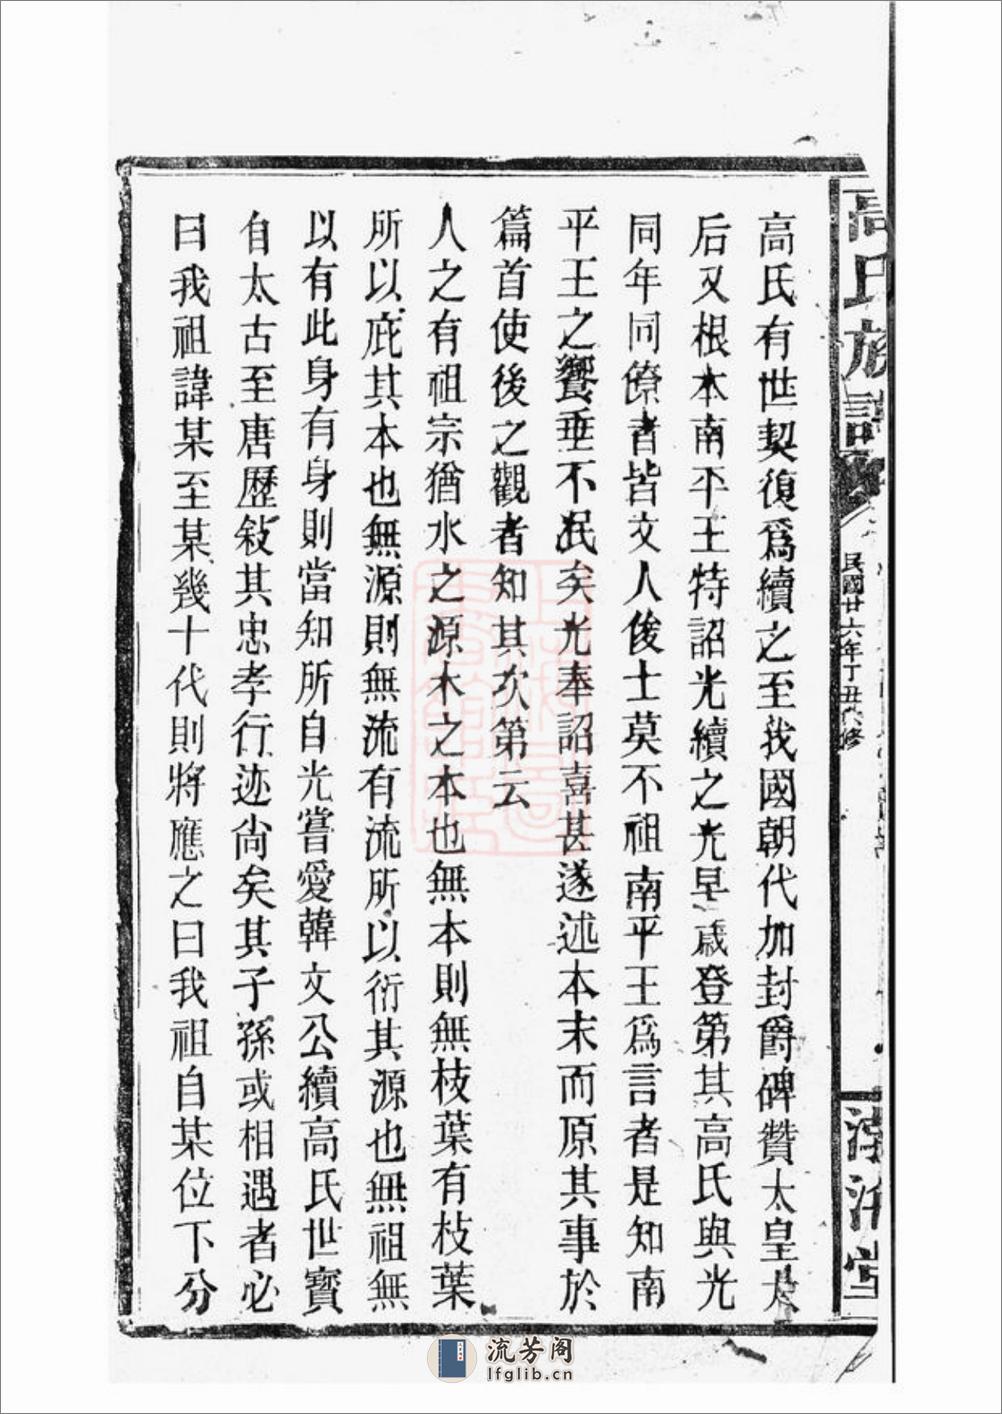 高氏族譜
民國廿六年丁丑六修
高氏有世契復爲續之至我國朝代加封爵碑贊太皇太
后又根本南平王特詔光續之光早歲登第其高氏與光
同年同僚者皆文人俊士莫不祖南平王爲言者是知南
平王之饗垂不泯矣光奉詔喜甚遂述本末而原其事於
篇首使後之觀者知其次第云
人之有祖宗猶水之源木之本也無本則無枝葉有枝葉
所以庇其本也無源則無流有流所以衍其源也無祖無
以有此身有身則當知所自光嘗愛韓文公續高氏世寳
自太古至唐歷敍其忠孝行迹尚矣其子孫或相遇者必
曰我祖諱某至某幾十代則將應之曰我祖自某位下分
流芳阁
lfglib.cn